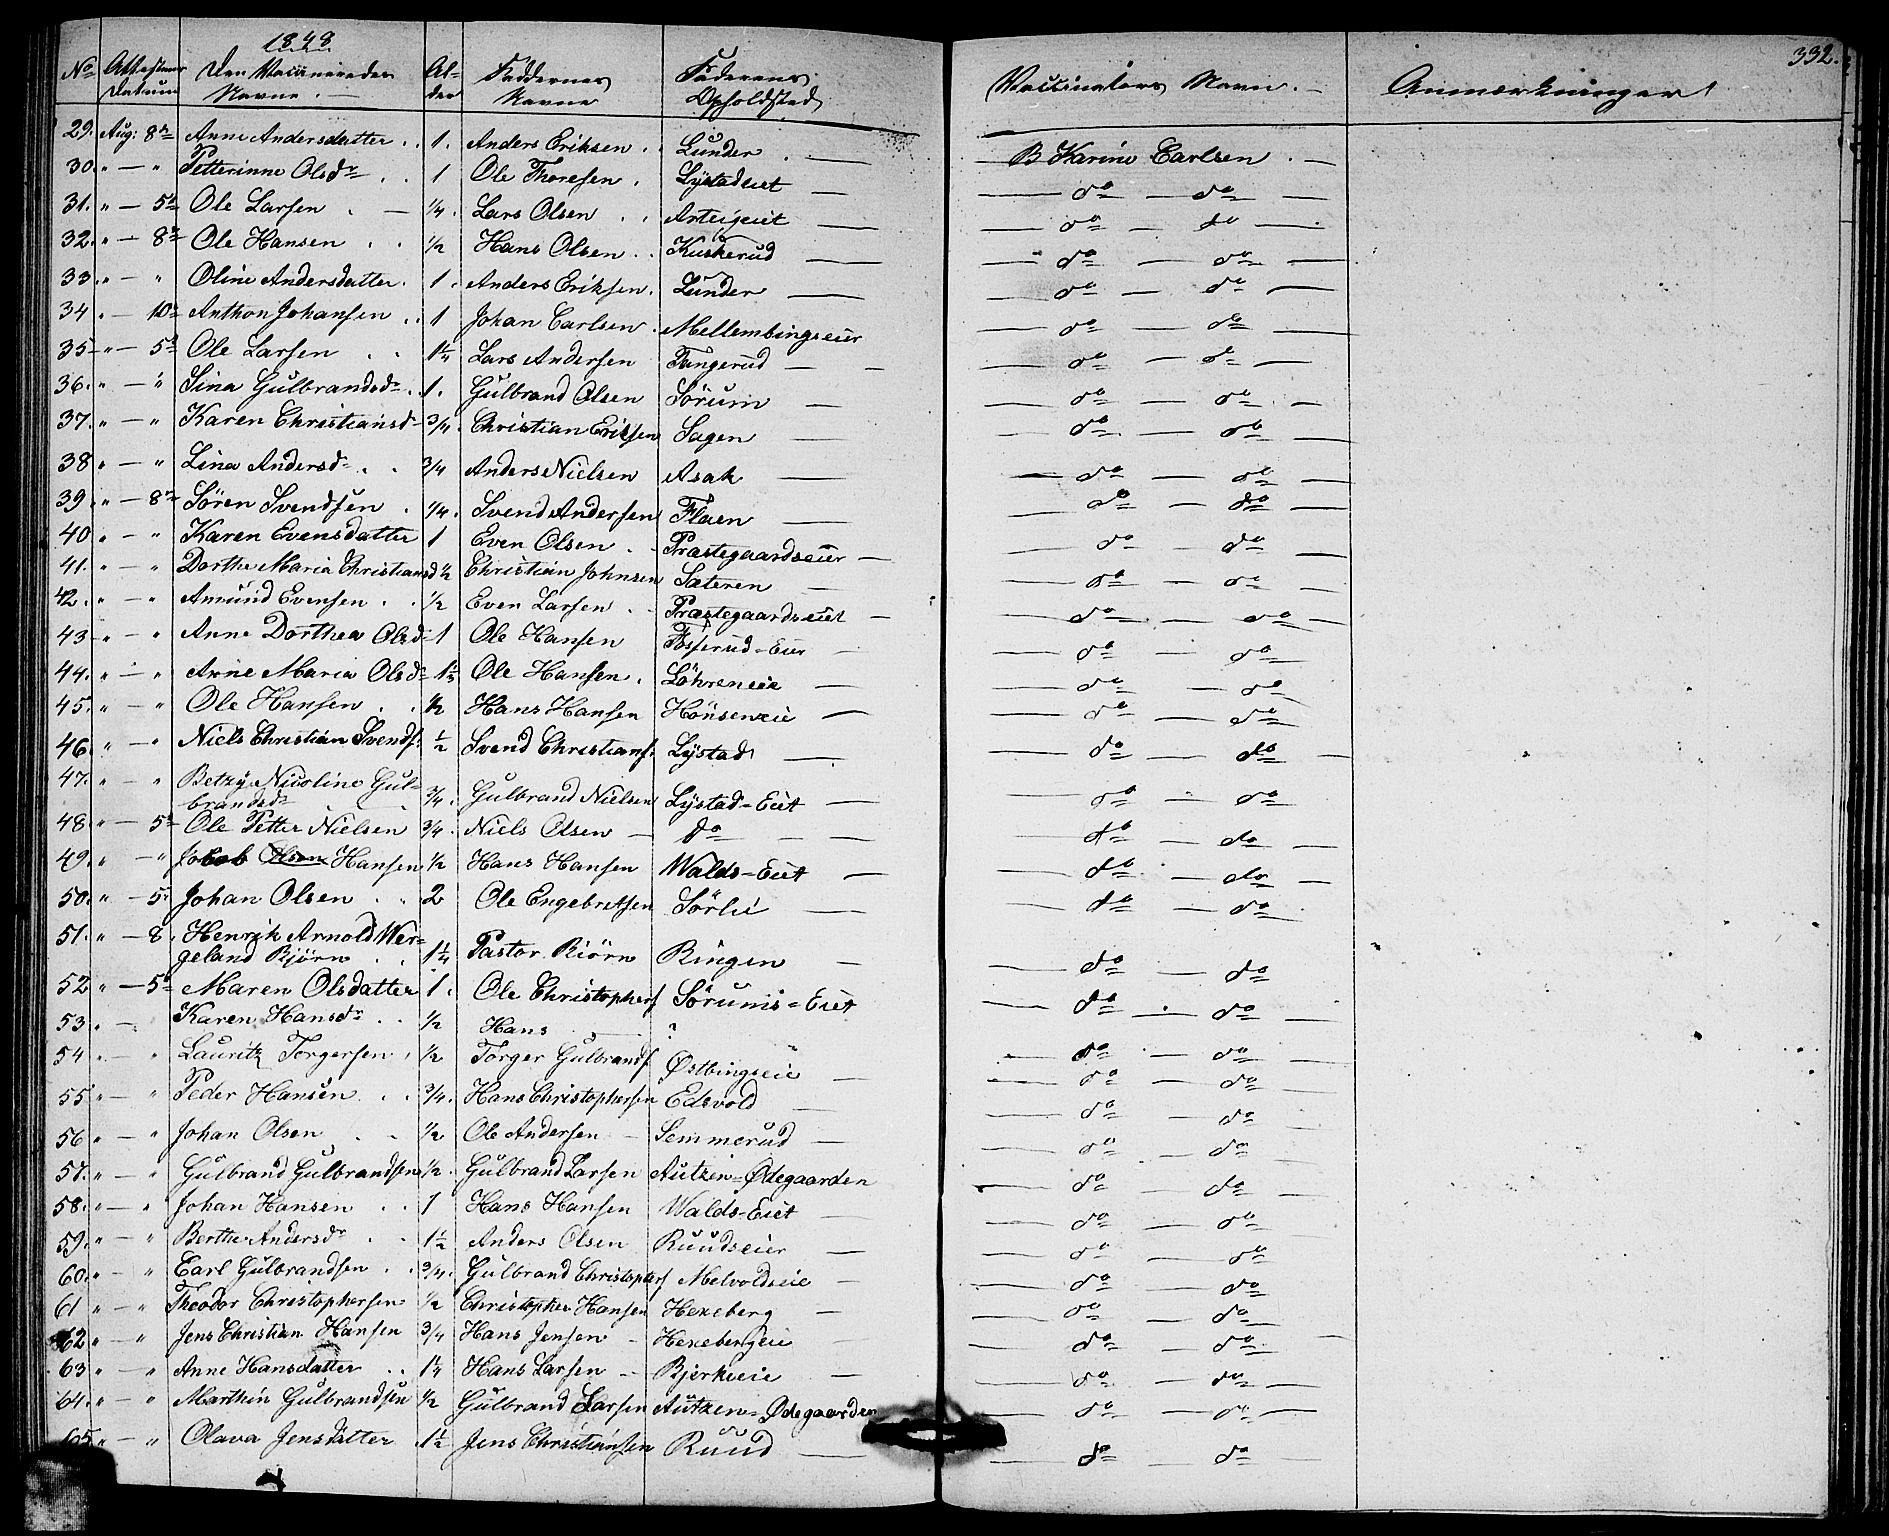 332.
1848
No Attestens Datum Den Vaccineredes Navne. Alder Faddernes Navne Faderens Opholdsted Vaccinators Navn. Anmærkninger
29. Aug: 8de Anne Andersdatter 1. Anders Eriksen Lunder B Karine Carlsen
30. " — " Petterinne Olsdr 1 Ole Thoresen Lystadeiet do — do
31. " — 5te Ole Larsen 1/4. Lars Olsen Arteigeiet do — do
32. " — 8de Ole Hansen 1/2 Hans Olsen Kuskerud do — do
33 " — " Oline Andersdatter 1. Anders Eriksen Lunder do — do
34 " — 10de Anthon Johansen 1 Johan Carlsen Mellembingseier do — do
35 " — 5te Ole Larsen 1 1/4 Lars Andersen Tangerud do — do
36. " — " Sina Gulbrandsdr 1. Gulbrand Olsen Sörum do — do
37. " — " Karen Christiansd 3/4. Christian Eriksen Sagen do — do
38 " — " Lina Andersdr 3/4 Anders Nielsen Asak do — do
39. " — 8de Sören Svendsen 1/4. Svend Andersen Flaen do — do
40 " — " Karen Evensdatter 1 Even Olsen Præstegaardseier do — do
41. " — " Dorthe Maria Christiansd 1/2 Christian Johnsen Sæteren do — do
42. " — " Amund Evensen 1/2 Even Larsen Præstegaardseiet do — do
43 " — " Anne Dorthea Olsd 1 Ole Hansen Fosserud-Eier do — do
44. " — " Anne Maria Olsdr 1 1/2 Ole Hansen Löhreneie do — do
45. " — " Ole Hansen 1/2 Hans Hansen Hönseneie do — do
46. " — " Niels Christian Svends. 1/2 Svend Christians. Lystad do — do
47. " — " Betzy Nicoline Gul-
brandsdr 3/4. Gulbrand Nielsen Lystad-Eiet do — do
48. " — 5te Ole Petter Nielsen 3/4. Niels Olsen do do — do
49. " — " Jakob Olsen Hansen 1/2 Hans Hansen Walds-Eiet do — do
50. " — 5 Johan Olsen 2 Ole Engebretsen Sörlie do — do
51. " — 8 Henrik Arnold Wer-
geland Björn 1 1/4 Pastor Biörn Ringen do — do
52 " — 5te Maren Olsdatter 1. Ole Christophers Sörums-Eiet do — do
53. " — Karen Hansdr 1/2 Hans ? do — do
54 " — " Lauritz Torgersen 1/2 Torger Gulbrands Østbingseie do — do
55 " — " Peder Hansen 3/4. Hans Christophersen Edsvold do — do
56 " — " Johan Olsen 1/2 Ole Andersen Semmerud do — do
57. " — " Gulbrand Gulbrandsen 1/2. Gulbrand Larsen Autzen-Ødegaarden do — do
58. " — " Johan Hansen 1 Hans Hansen Walds-Eiet do — do
59. " — " Berthe Andersdr 1 1/2 Anders Olsen Ruudseier do — do
60. " — " Carl Gulbrandsen 3/4. Gulbrand Christophers Melvoldseie do — do
61 " — " Theodor Christophersen 1/2 Christopher Hansen Hexeberg do — do
62 " — " Jens Christian Hansen 3/4 Hans Jensen Hexebergeie do — do
63 " — " Anne Hansdatter 1 1/4 Hans Larsen Bjerkeeie do — do
64. " — " Marthin Gulbrandsen 1/2 Gulbrand Larsen Autzen-Ødegaarden do — do
65 " — " Olava Jensdatter 1 1/2 Jens Christiansen Ruud do — do